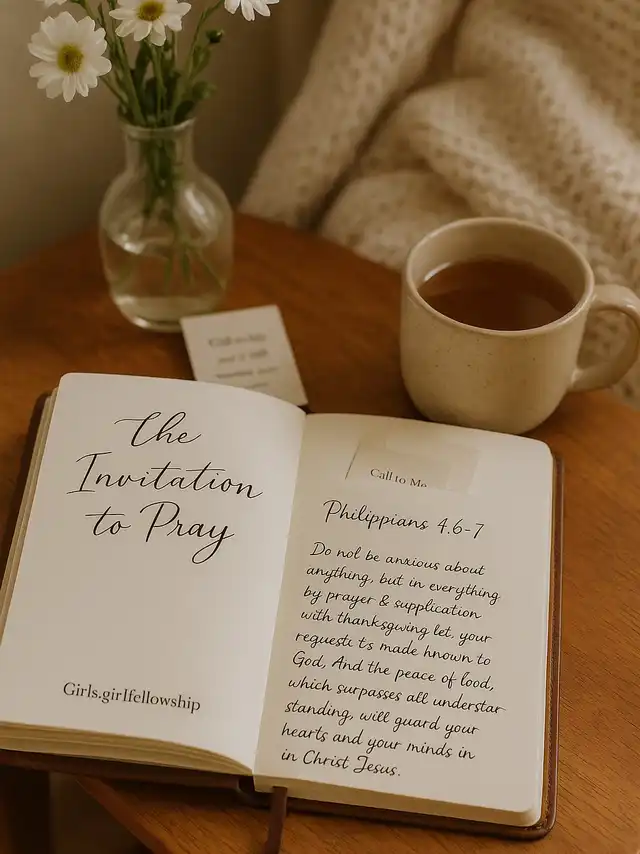 The
Invitation
to Pray
Girls.girlfellowship
Call to Me
Philippians 4.6-7
Do not be anxious about
anything, but in everything
by prayer & supplication
with thanksgwing let, your
requestı ts made hnown to
God, And the peace of lood,
which surpasses all understar
standing, will guard your
hearts and your minds in
in Christ Jesus.